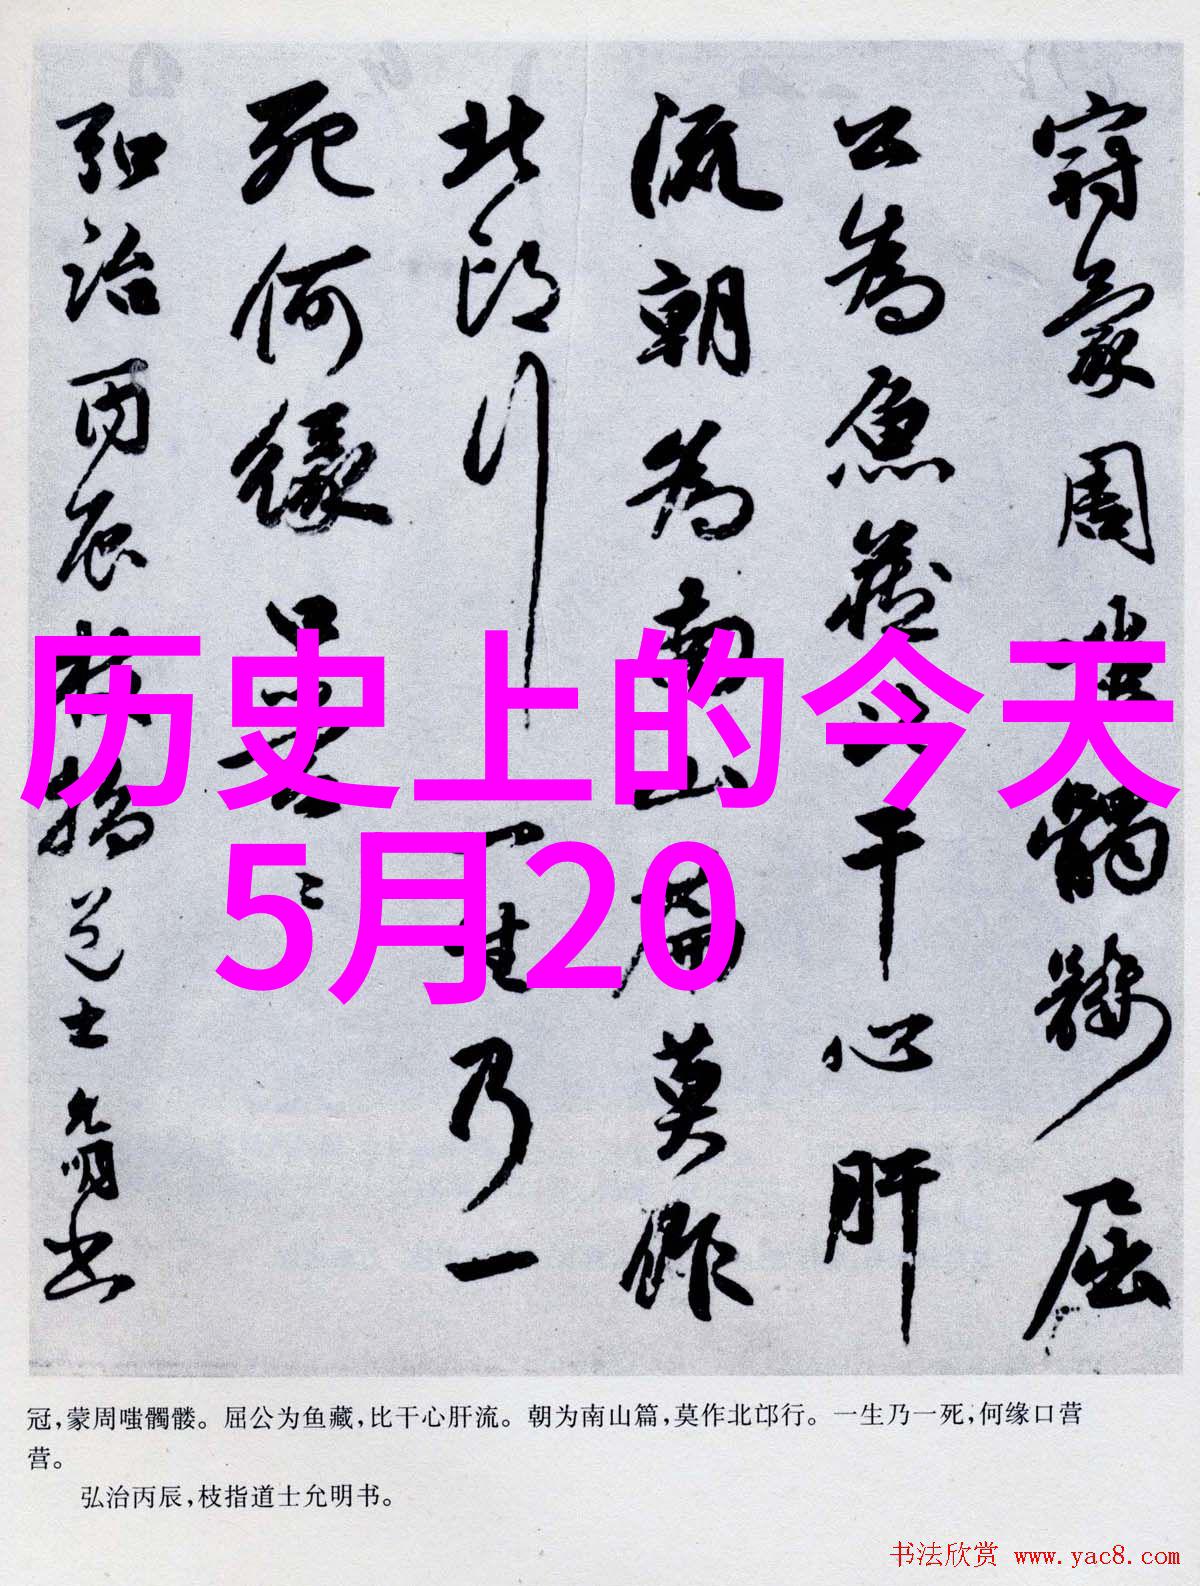 冠蒙周嗤髑髏屈
公為魚藏比干心肝
流朝為南山篇莫作
北邙行一生乃一
死何緣口營〻
弘治丙辰枝指道士允明書
历史上的今天
5月20
冠,蒙周嗤髑髅。屈公为鱼藏,比干心肝流。朝为南山篇,莫作北邙行。一生乃一死,何缘口营
营。
弘治丙辰,枝指道士允明书。
书法欣赏 www.yac8.com